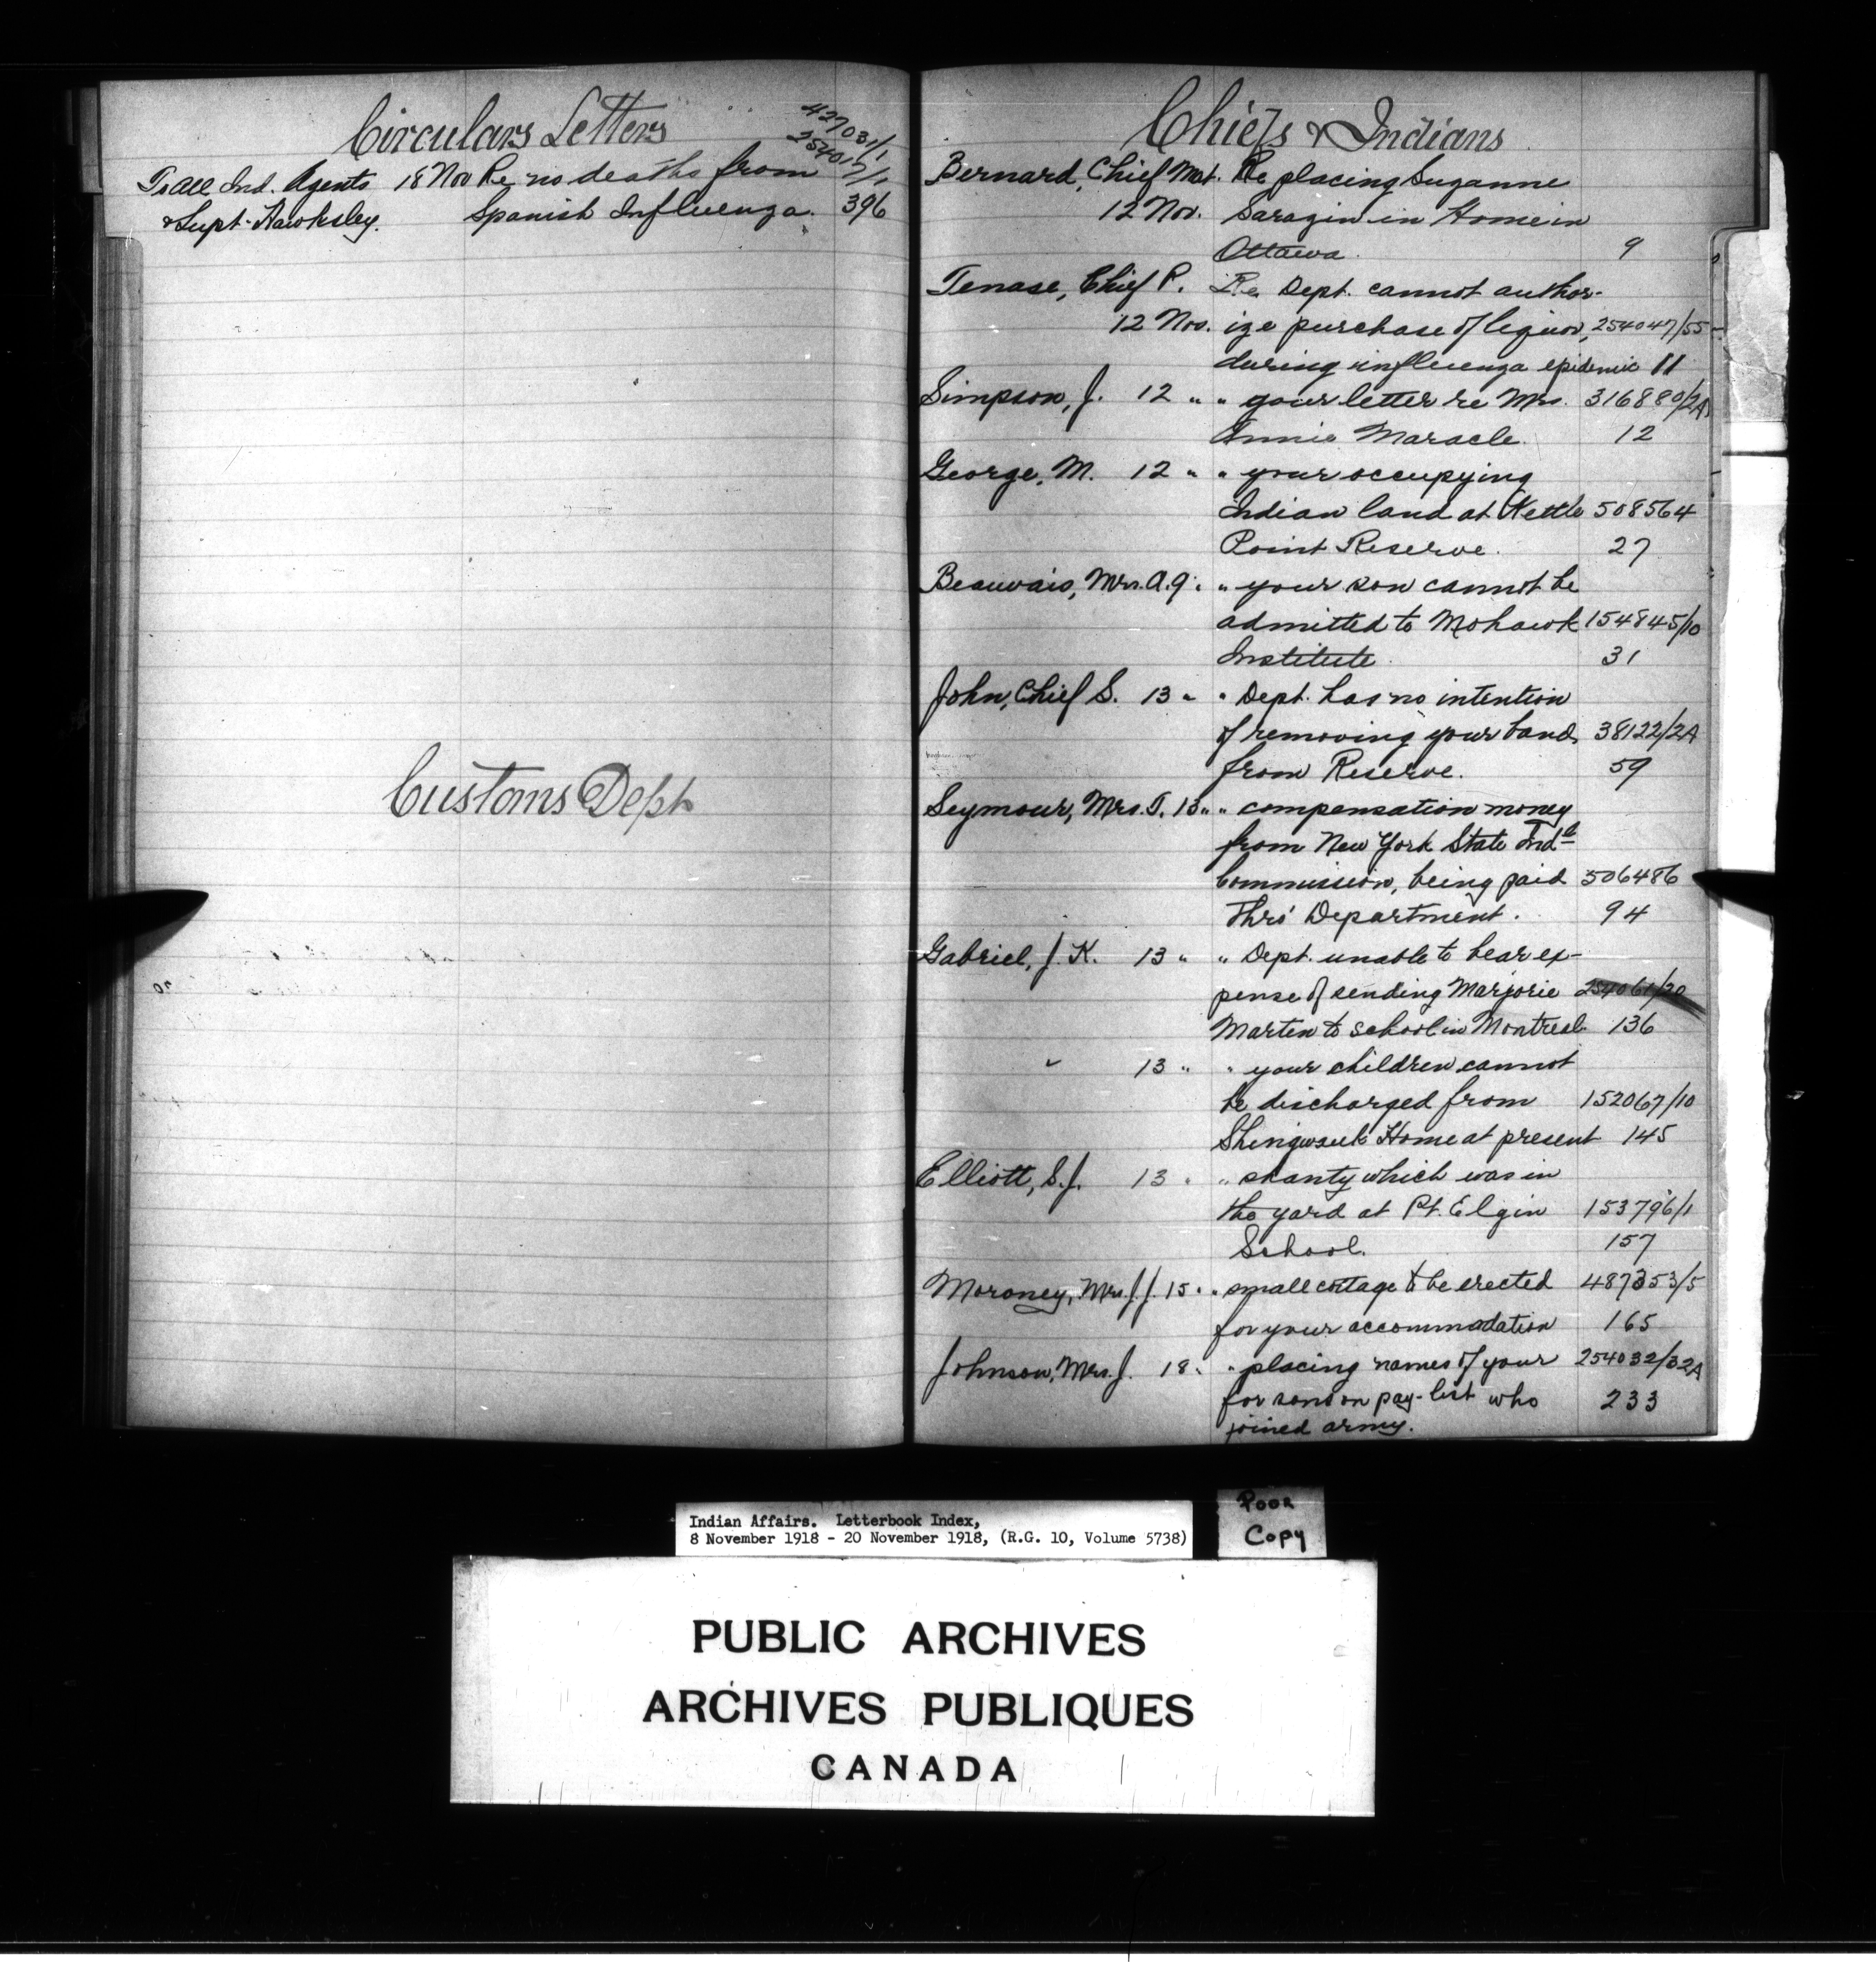 Circulars Letters
427031/1
254017/1
To all Ind. Agents 18 Nov Re no deaths from
& Supt. Hawksley. Spanish Influenza. 396
Customs Dept
Chiefs & Indians
Bernard, Chief Mat. Re placing Suzanne
12 Nov. Saragin in Home in
Ottawa. 9
Tenase, Chief P. Re Dept. cannot author-
12 Nov. ize purchase of liquor, 254047/55
during influenza epidemic 11
Simpson, J. 12 " " your letter re Mrs. 316880/2A
Annie Maracle. 12
George, M. 12 " " your occupying
Indian land at Kettle 508564
Point Reserve. 27
Beauvais, Mrs. A. 9 " " your son cannot be
admitted to Mohawk 154845/10
Institute. 31
John, Chief S. 13 " " Dept. has no intention
of removing your band 38122/2A
from Reserve. 59
Seymour, Mrs. T. 13 " " compensation money
from New York State Ind
Commission, being paid 506486
Thro' Department. 94
Gabriel, J. K. 13 " " Dept. unable to bear ex-
pense of sending Marjorie 254061/20
Marten to school in Montreal. 136
" 13 " " your children cannot
be discharged from 152067/10
Shingwauk Home at present 145
Elliott, S. J. 13 " " shanty which was in
the yard at Pt. Elgin 153796/1
School. 157
Moroney, Mrs. J. J. 15 " " small cottage to be erected 487353/5
for your accommodation 165
Johnson, Mrs. J. 18 " " placing names of your 254032/32A
for sons on pay-list who 233
joined army.
Indian Affairs. Letterbook Index,
8 November 1918 - 20 November 1918, (R.G. 10, Volume 5738)
Poor
Copy
PUBLIC ARCHIVES
ARCHIVES PUBLIQUES
CANADA